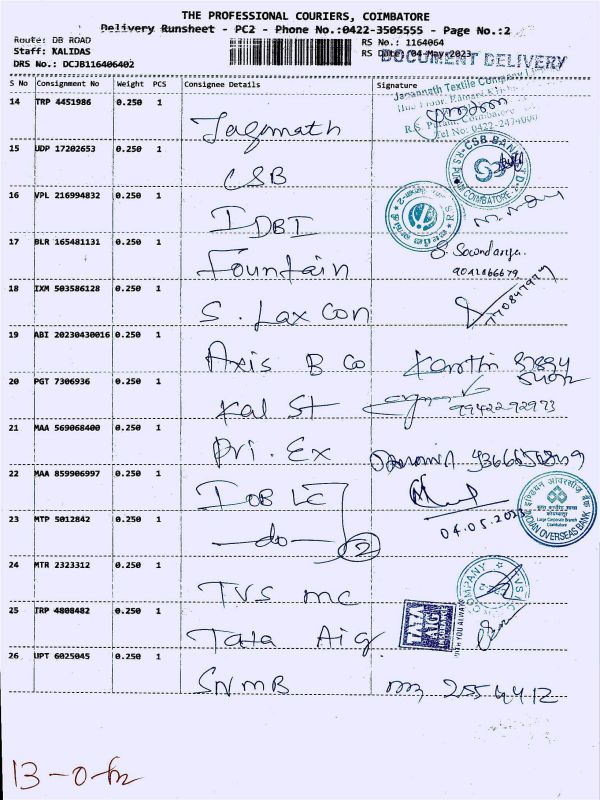 THE PROFESSIONAL COURIERS, COIMBATORE
Delivery Runsheet - PC2 - Phone No.:0422-3505555 - Page No.:2
Route: DB ROAD
Staff: KALIDAS
DRS No.: DCJB116406402
RS No.: 1164064
RS Date: 04-May-2023
DOCUMENT DELIVERY
S No Consignment No Weight PCS Consignee Details Signature
14 TRP 4451986 0.250 1 Jagannath
Jagannath Textile Company
Tel No: 0422-2474000
15 UDP 17202653 0.250 1 CSB
CSB BANK
COIMBATORE
16 VPL 216994832 0.250 1 IDBI
17 BLR 165481131 0.250 1 Fountain S. Soundarya
18 IXM 503586128 0.250 1 S. Lax Con
19 ABI 20230430016 0.250 1 Axis B Co
20 PGT 7306936 0.250 1 Kal St 99422 92973
21 MAA 569068400 0.250 1 Pri. Ex
22 MAA 859906997 0.250 1 IOB LC
04.05.2023
इण्डियन ओवरसीज़ बैंक
Large Corporate Branch
Coimbatore
INDIAN OVERSEAS BANK
23 MTP 5012842 0.250 1 -do- 2
24 MTR 2323312 0.250 1 TVS mc
COMPANY
25 TRP 4808482 0.250 1 Tata Aig
TATA AIG
WITH YOU ALWAYS
26 UPT 6025045 0.250 1 SNMB